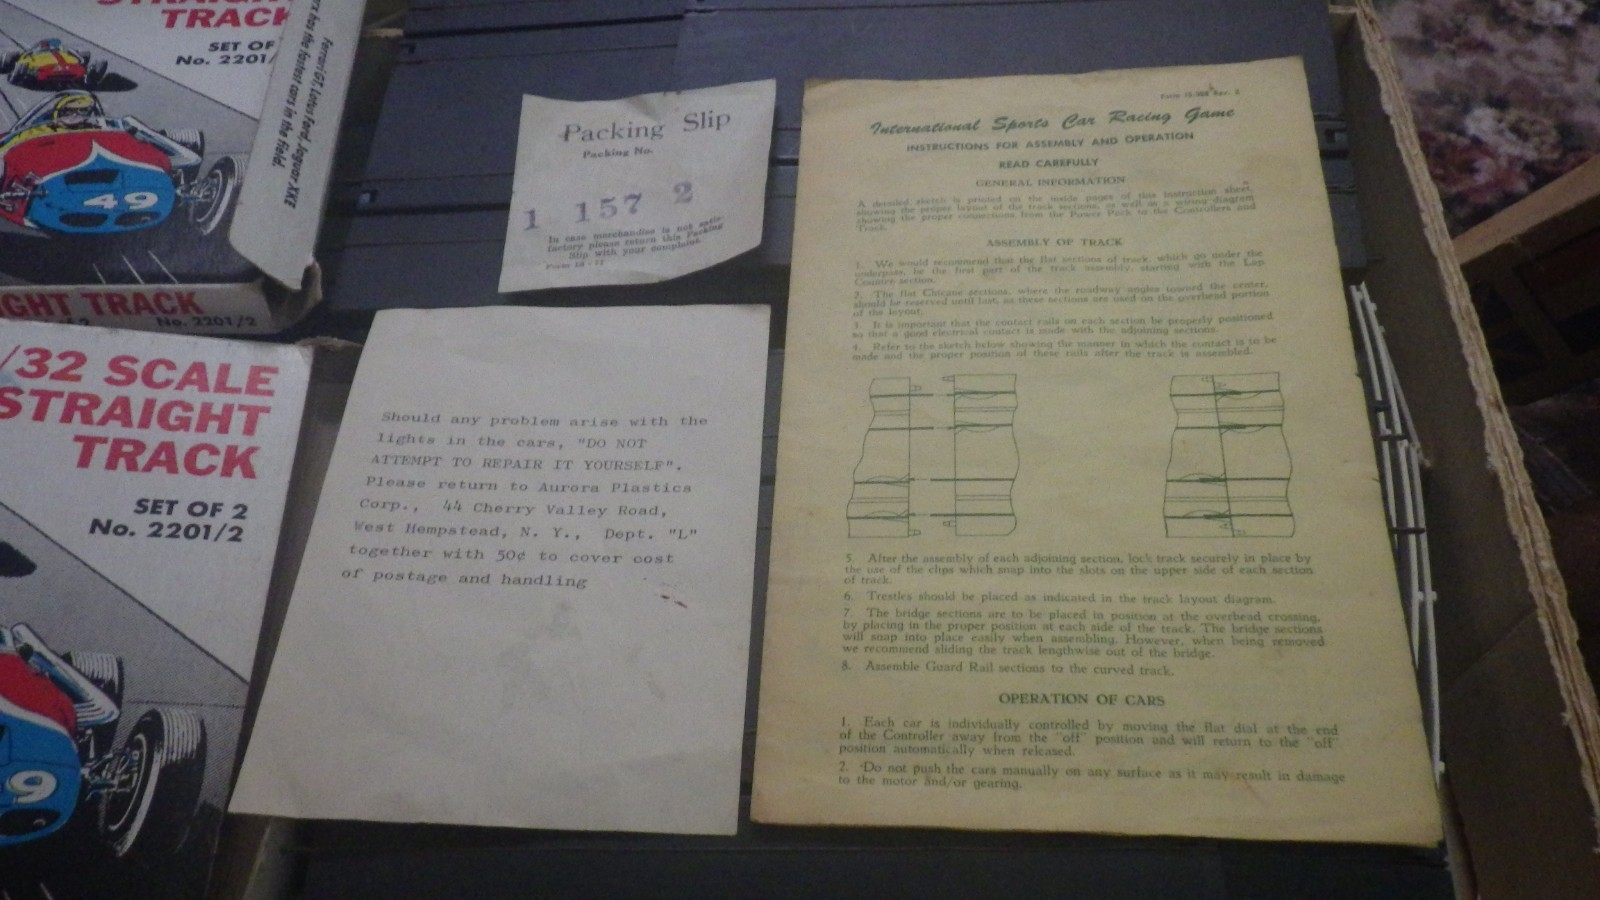 STRAIGHT
TRACK
SET OF
No. 2201/
has the fastest cars in the field.
Ferrari GT, Lotus Ford, Jaguar XKE
49
IGHT TRACK
No. 2201/2
/32 SCALE
STRAIGHT
TRACK
SET OF 2
No. 2201/2
9
Packing Slip
Packing No.
1 157 2
In case merchandise is not satis-
factory please return this Packing
Slip with your complaint.
Should any problem arise with the
lights in the cars, "DO NOT
ATTEMPT TO REPAIR IT YOURSELF".
Please return to Aurora Plastics
Corp., 44 Cherry Valley Road,
West Hempstead, N. Y., Dept. "L"
together with 50¢ to cover cost
of postage and handling
International Sports Car Racing Game
INSTRUCTIONS FOR ASSEMBLY AND OPERATION
READ CAREFULLY
GENERAL INFORMATION
A detailed sketch is printed on the inside pages of this instruction sheet,
showing the proper layout of the track sections, as well as a wiring diagram
showing the proper connections from the Power Pack to the Controllers and
Track.
ASSEMBLY OF TRACK
1. We would recommend that the flat sections of track, which go under the
underpass, be the first part of the track assembly, starting with the Lap
Counter section.
2. The flat Chicane sections, where the roadway angles toward the center,
should be reserved until last, as these sections are used on the overhead portion
of the layout.
3. It is important that the contact rails on each section be properly positioned
so that a good electrical contact is made with the adjoining sections.
4. Refer to the sketch below showing the manner in which the contact is to be
made and the proper position of these rails after the track is assembled.
5. After the assembly of each adjoining section, lock track securely in place by
the use of the clips which snap into the slots on the upper side of each section
of track.
6. Trestles should be placed as indicated in the track layout diagram.
7. The bridge sections are to be placed in position at the overhead crossing,
by placing in the proper position at each side of the track. The bridge sections
will snap into place easily when assembling. However, when being removed
we recommend sliding the track lengthwise out of the bridge.
8. Assemble Guard Rail sections to the curved track.
OPERATION OF CARS
1. Each car is individually controlled by moving the flat dial at the end
of the Controller away from the "off" position and will return to the "off"
position automatically when released.
2. Do not push the cars manually on any surface as it may result in damage
to the motor and/or gearing.